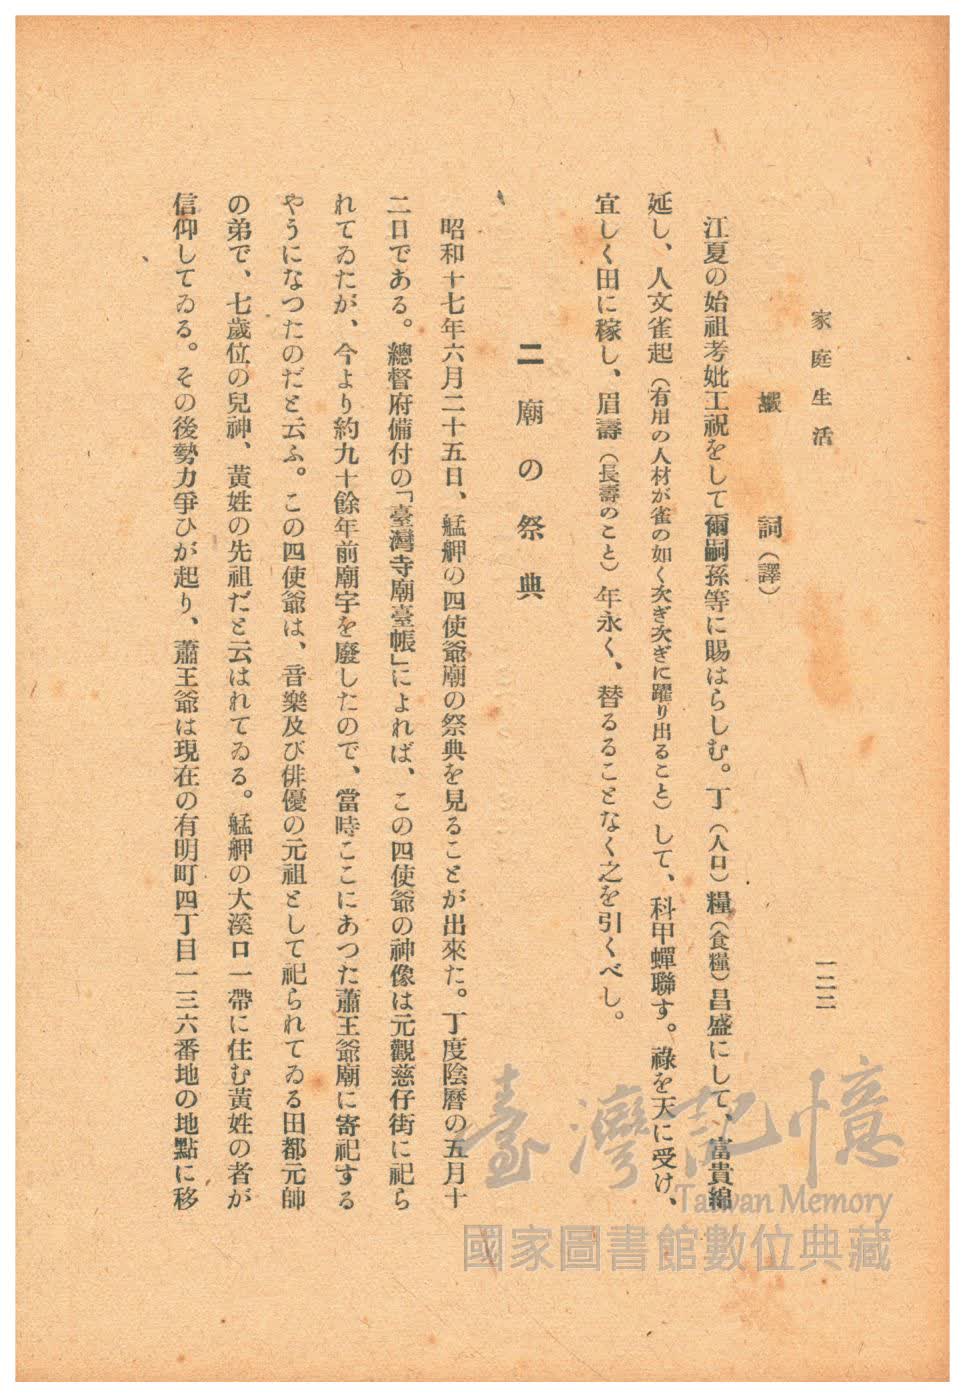 家庭生活
一二二
嘏詞（譯）
江夏の始祖考妣工祝をして爾嗣孫等に賜はらしむ。丁（人口）糧（食糧）昌盛にして、富貴綿
延し、人文雀起（有用の人材が雀の如く次ぎ次ぎに躍り出ること）して、科甲蟬聯す。祿を天に受け、
宜しく田に稼し、眉壽（長壽のこと）年永く、替るることなく之を引くべし。
二 廟の祭典
昭和十七年六月二十五日、艋舺の四使爺廟の祭典を見ることが出來た。丁度陰曆の五月十
二日である。總督府備付の「臺灣寺廟臺帳」によれば、この四使爺の神像は元觀慈仔街に祀ら
れてゐたが、今より約九十餘年前廟宇を廢したので、當時ここにあつた蕭王爺廟に寄祀する
やうになつたのだと云ふ。この四使爺は、音樂及び俳優の元祖として祀られてゐる田都元帥
の弟で、七歲位の兒神、黃姓の先祖だと云はれてゐる。艋舺の大溪口一帶に住む黃姓の者が
信仰してゐる。その後勢力爭ひが起り、蕭王爺は現在の有明町四丁目一三六番地の地點に移
臺灣記憶
Taiwan Memory
國家圖書館數位典藏